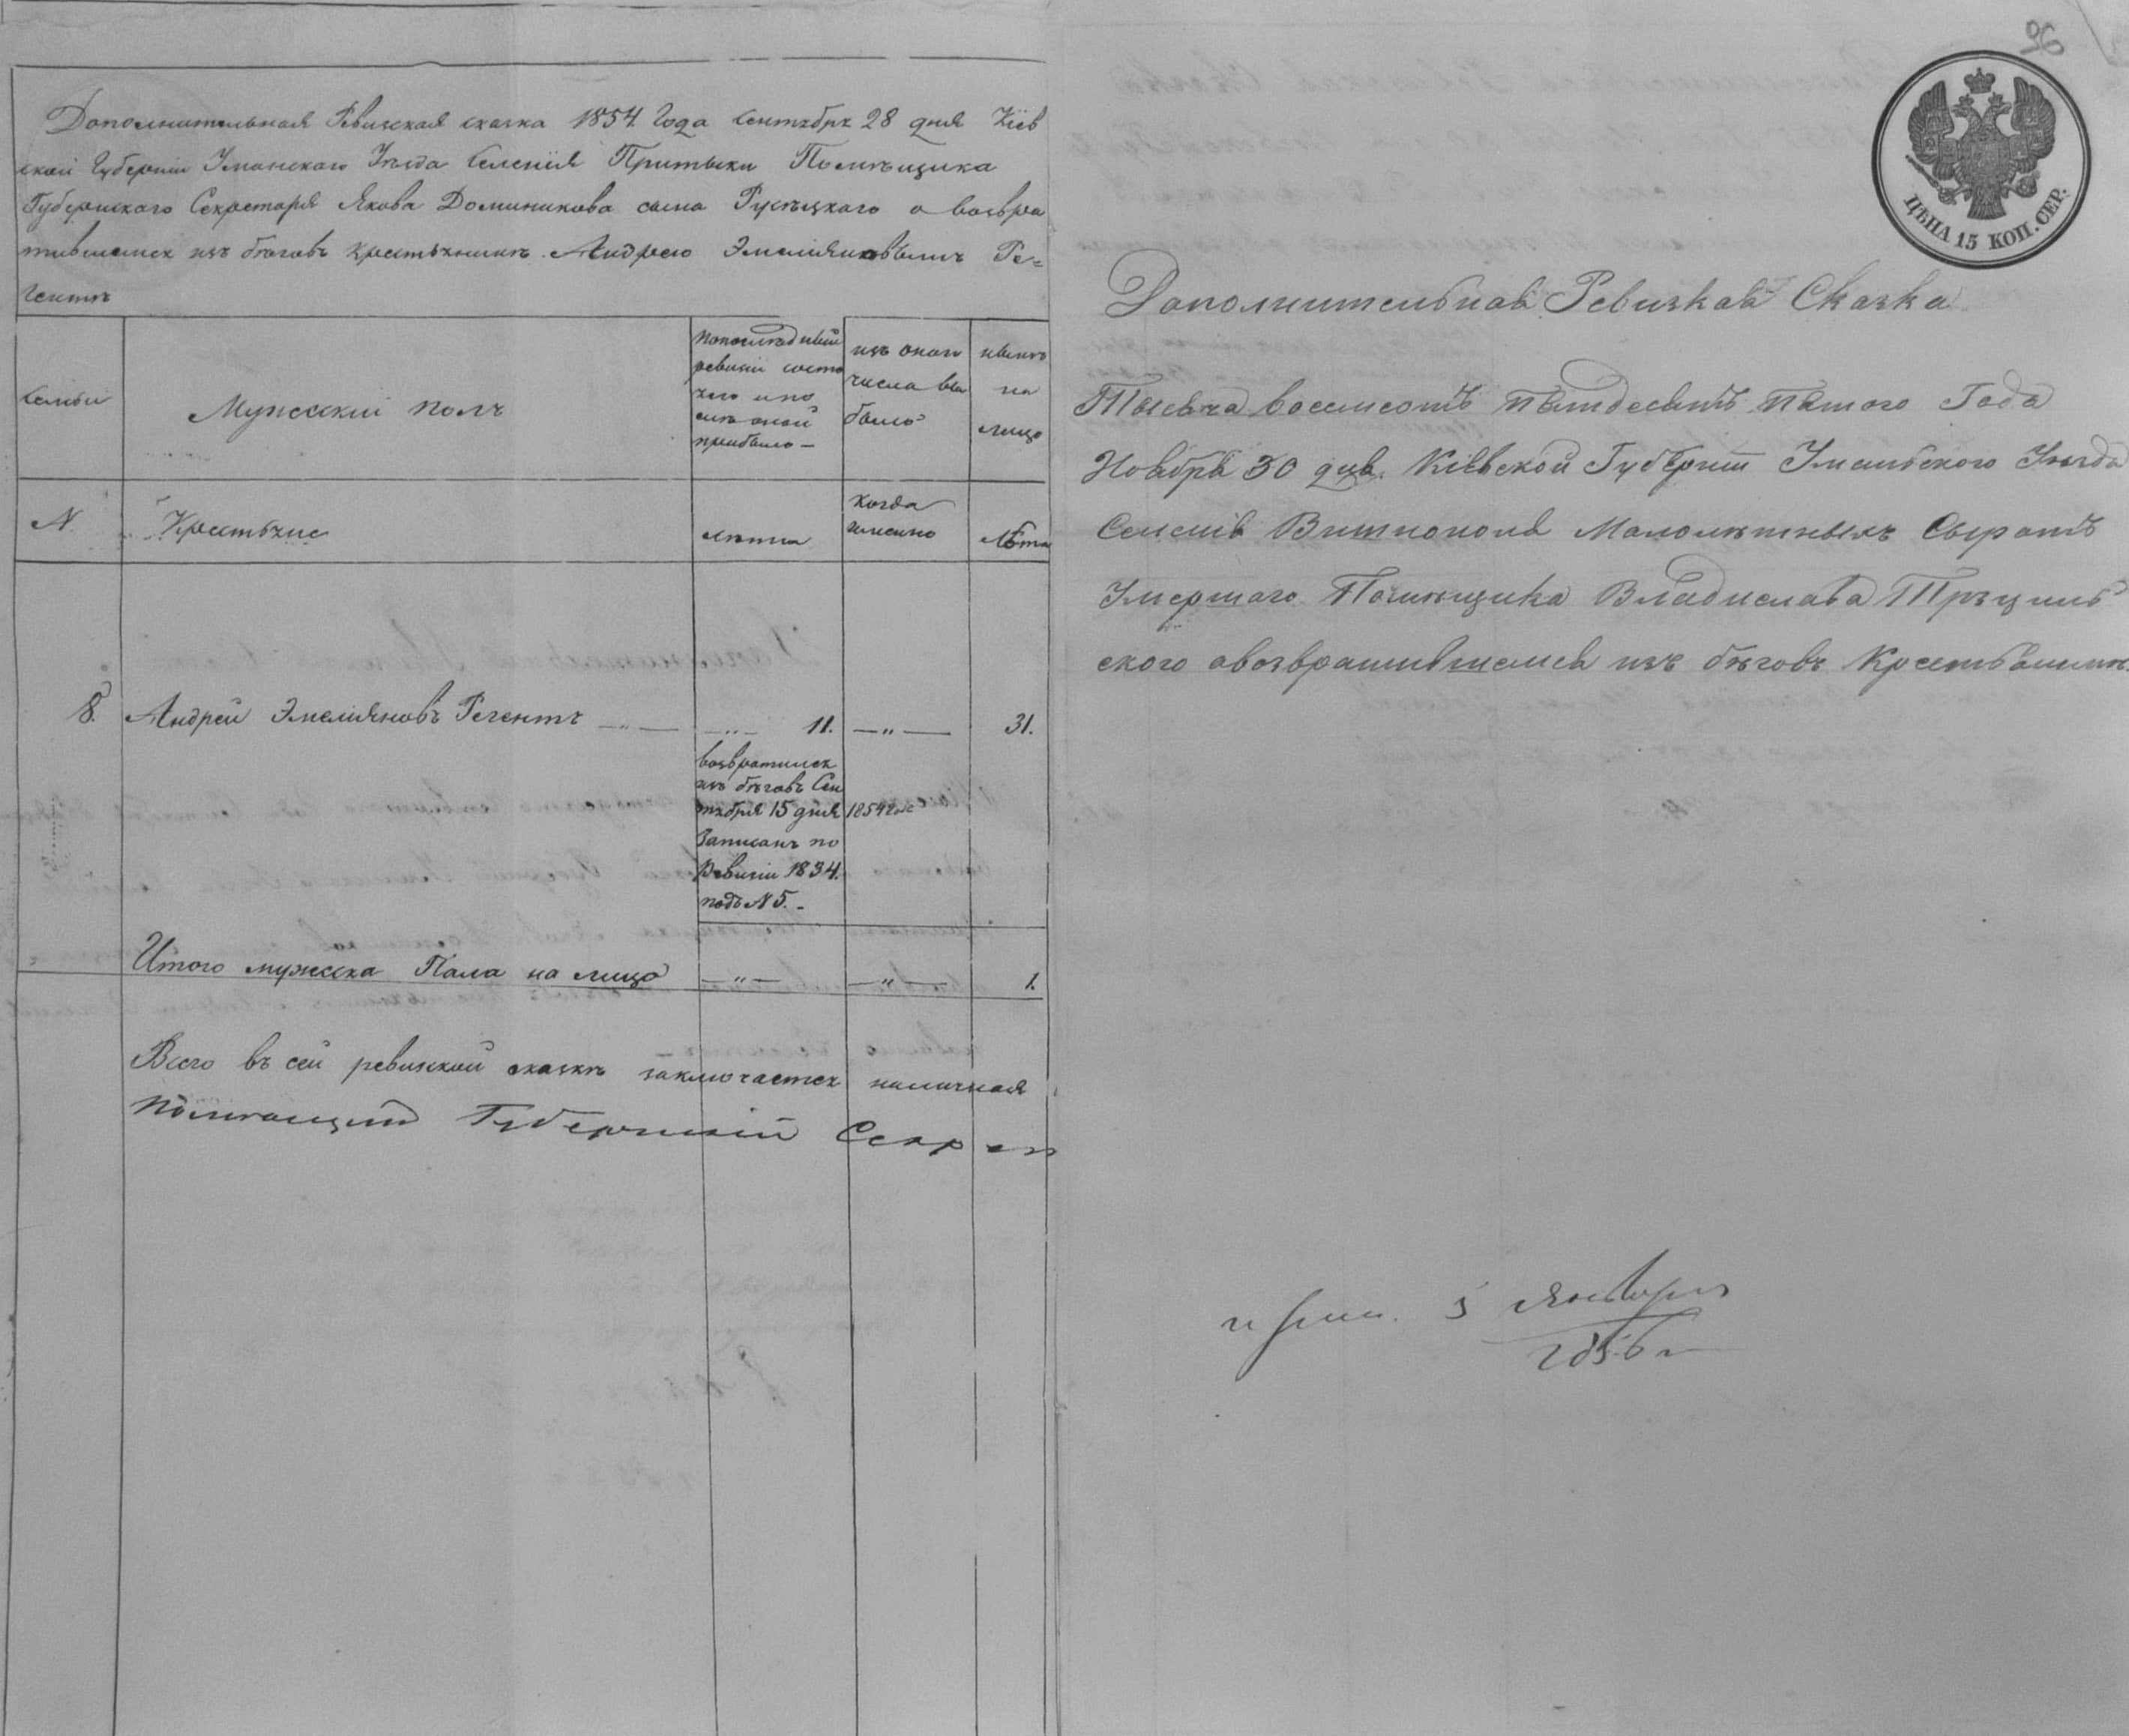 Дополнительная Ревизская сказка 1854 Года Сентября 28 дня Кіев
ской Губерніи Уманскаго Уѣзда Селенія Притыки Помѣщика
Губернскаго Секретаря Якова Доминикова сына о возвра
тившемся изъ бѣговъ крестьянинѣ Андрею Эмеліяновѣ Ре=
гентѣ
Семьи
Мужескій полъ
По последней
ревизіи состо
яло и по
слѣ оной
прибыло —
изъ онаго
числа вы
было
нынѣ
на
лицо
N
Крестьяне
лѣта
когда
именно
лѣта
8. Андрей Эмеліяновъ Регентъ — 11. — " — 31.
возвратился
изъ бѣговъ Сен
тября 15 дня 1854 года
Записанъ по
Ревизіи 1834.
подъ N 5.
Итого мужеска Пола на лицо — " — — " — 1.
Всего въ сей ревизской сказкѣ заключается наличная
Помѣщикъ Губернскій Секрет
26
ЦѢНА 15 КОП. СЕР.
Дополнительная Ревизкая Сказка
Тысяча восемсотъ пятдесятъ пятого Года
Ноября 30 дня. Кіевской Губерніи Уманьского Уѣзда
Селенія Малолѣтныхъ Сыротъ
Умершаго Помѣщика Владислава
ского овозвратившемся изъ бѣговъ Крестьянинѣ.
5 Января
1856 г